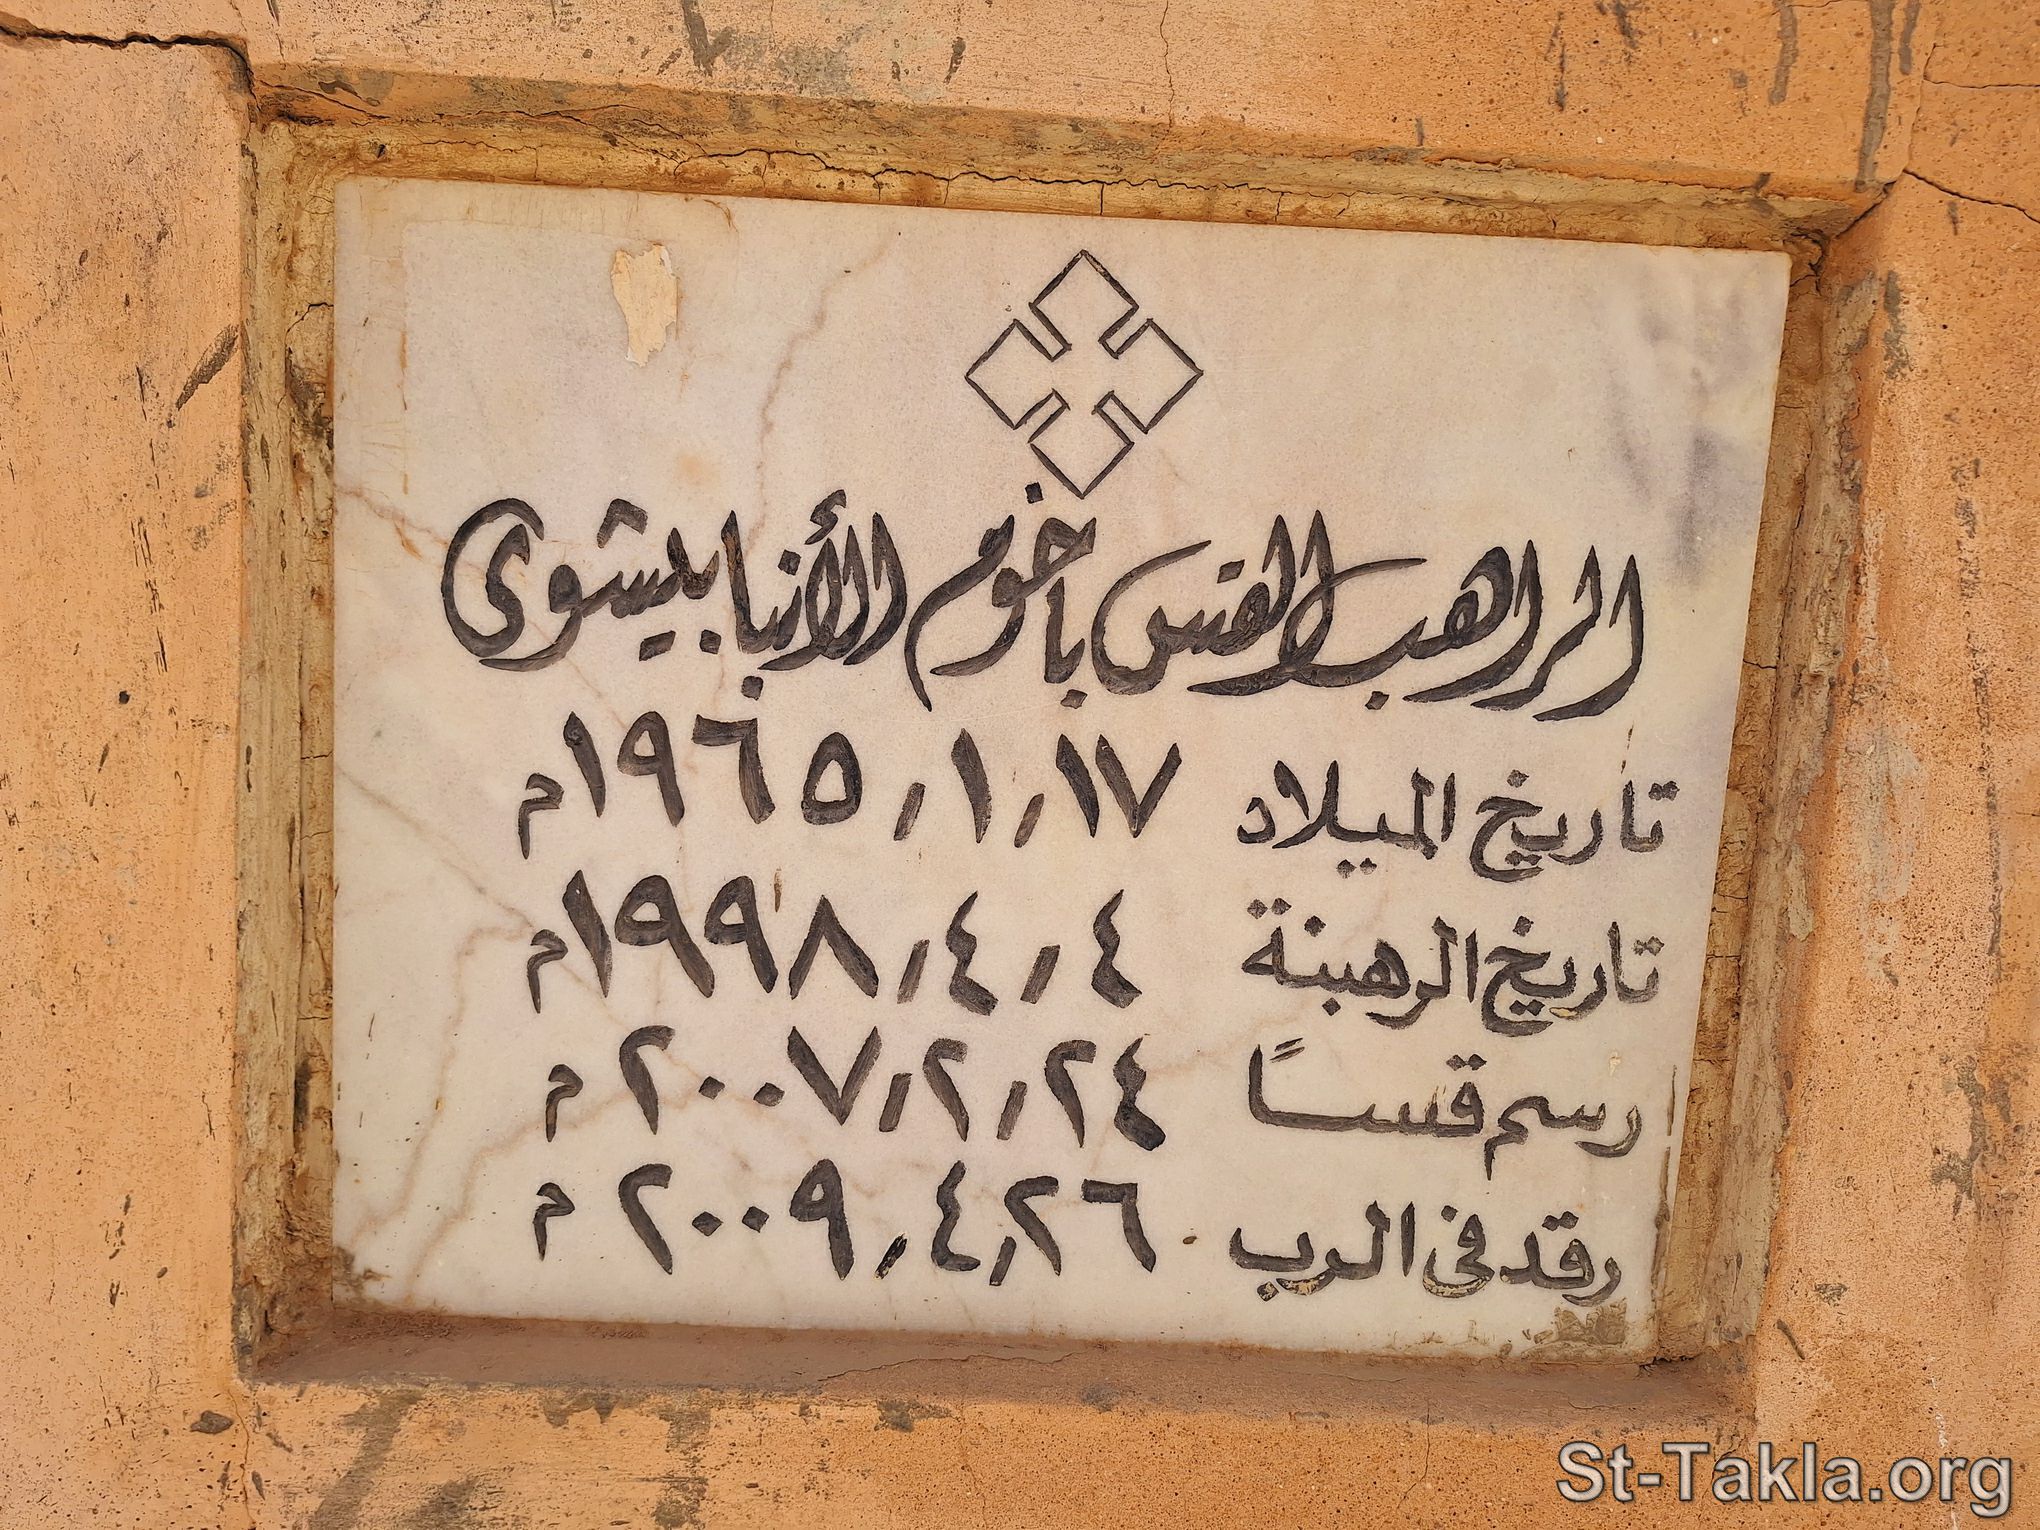 الراهب القس باخوم الأنبا بيشوى
تاريخ الميلاد ١٧/١/١٩٦٥م
تاريخ الرهبنة ٤/٤/١٩٩٨م
رسم قسساً ٢٤/٢/٢٠٠٧م
رقد فى الرب ٢٦/٤/٢٠٠٩م
St-Takla.org